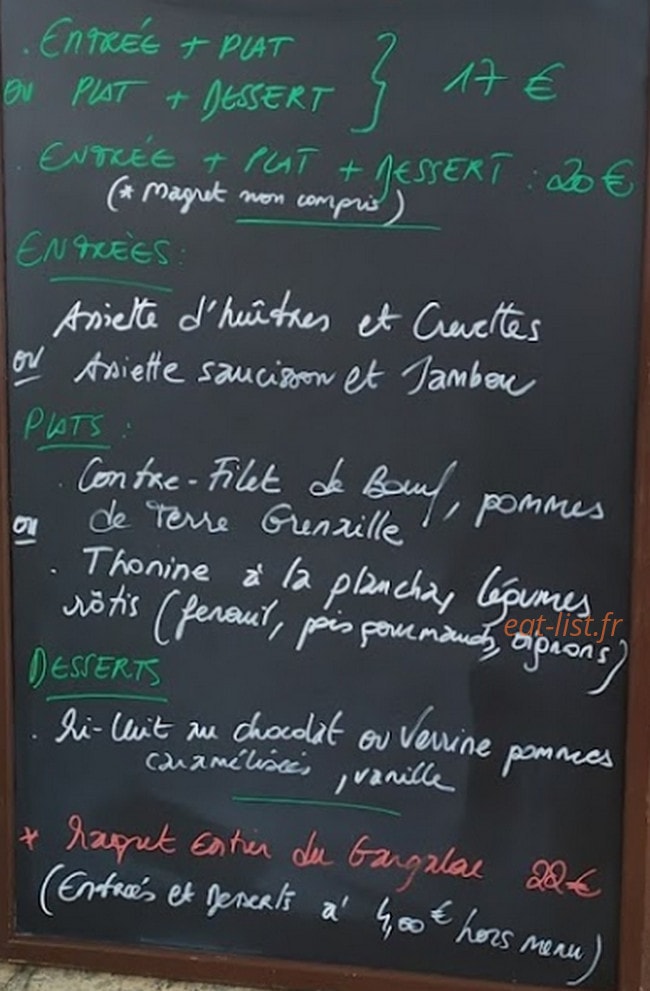 . ENTRÉE + PLAT
OU PLAT + DESSERT } 17 €
. ENTRÉE + PLAT + DESSERT : 20 €
(* Magret non compris)
ENTRÉES :
Assiette d'huîtres et Crevettes
ou Assiette saucisson et Jambon
PLATS :
. Contre-Filet de Boeuf, pommes
ou de Terre Grenaille
. Thonine à la plancha, légumes
rôtis (fenouil, pois gourmands, oignons)
eat-list.fr
DESSERTS
. Mi-Cuit au chocolat ou Verrine pommes
caramélisées, vanille
* Magret Entier du 22 €
(Entrées et Desserts à 4,00 € hors menu)